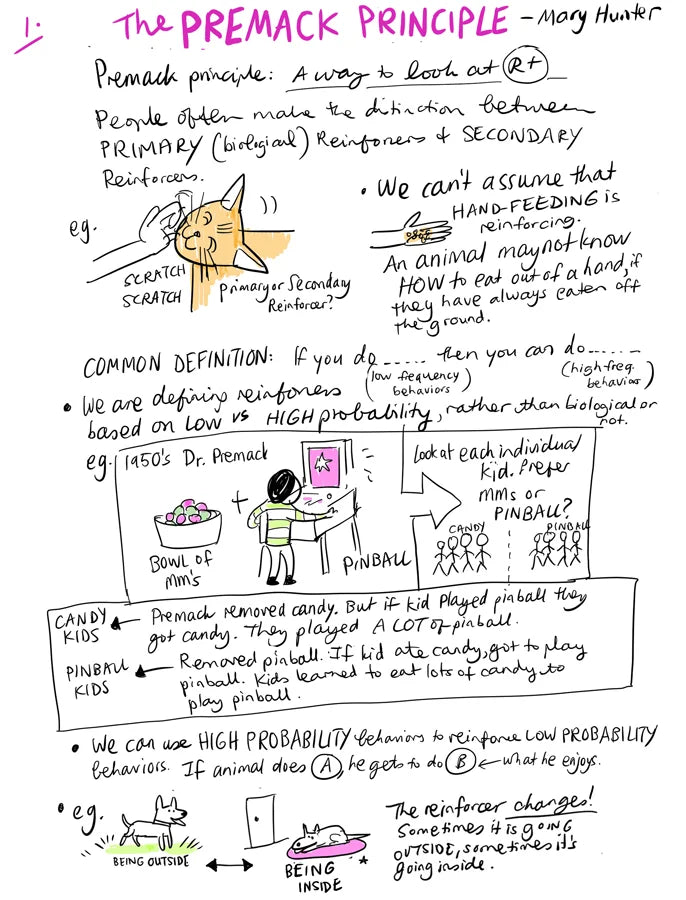 1.
The PREMACK PRINCIPLE - Mary Hunter
Premack principle: A way to look at R+
People often make the distinction between
PRIMARY (biological) Reinforcers & SECONDARY
Reinforcers.
eg.
SCRATCH
SCRATCH
Primary or Secondary
Reinforcer?
• We can't assume that
HAND-FEEDING is
reinforcing.
An animal may not know
HOW to eat out of a hand, if
they have always eaten off
the ground.
COMMON DEFINITION: If you do ..... then you can do.......
(low frequency
behaviors)
(high freq.
behavior)
• We are defining reinforcers
based on LOW vs HIGH probability, rather than biological or
not.
eg. 1950's Dr. Premack
+
BOWL OF
MM'S
PINBALL
Look at each individual
kid. Prefer
MMs or
PINBALL?
CANDY
PINBALL
CANDY
KIDS
Premack removed candy. But if kid played pinball they
got candy. They played A LOT of pinball.
PINBALL
KIDS
Removed pinball. If kid ate candy, got to play
pinball. Kids learned to eat lots of candy to
play pinball.
• We can use HIGH PROBABILITY behaviors to reinforce LOW PROBABILITY
behaviors. If animal does A, he gets to do B ← what he enjoys.
• eg.
BEING OUTSIDE
BEING
INSIDE
*
The reinforcer changes!
Sometimes it is GOING
OUTSIDE, sometimes it's
going inside.